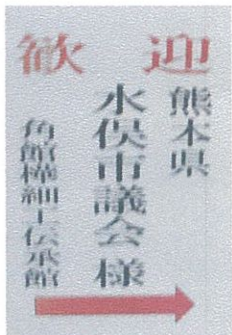 歓迎
熊木県
水俣市議会様
角館樺細工伝承館